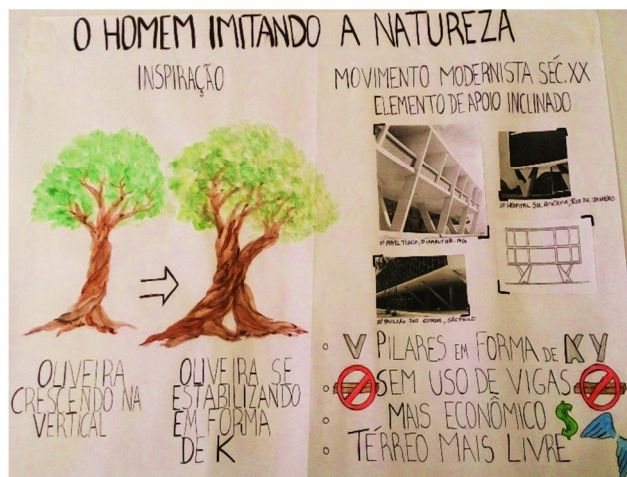 O HOMEM IMITANDO A NATUREZA
INSPIRAÇÃO
OLIVEIRA
CRESCENDO NA
VERTICAL
OLIVEIRA SE
ESTABILIZANDO
EM FORMA
DE K
MOVIMENTO MODERNISTA SÉC. XX
ELEMENTO DE APOIO INCLINADO
HOTEL TIJUCO, DIAMANTINA
HOSPITAL SUL AMÉRICA, RIO DE JANEIRO
SÃO PAULO
V PILARES EM FORMA DE K Y
SEM USO DE VIGAS
MAIS ECONÔMICO $
TÉRREO MAIS LIVRE